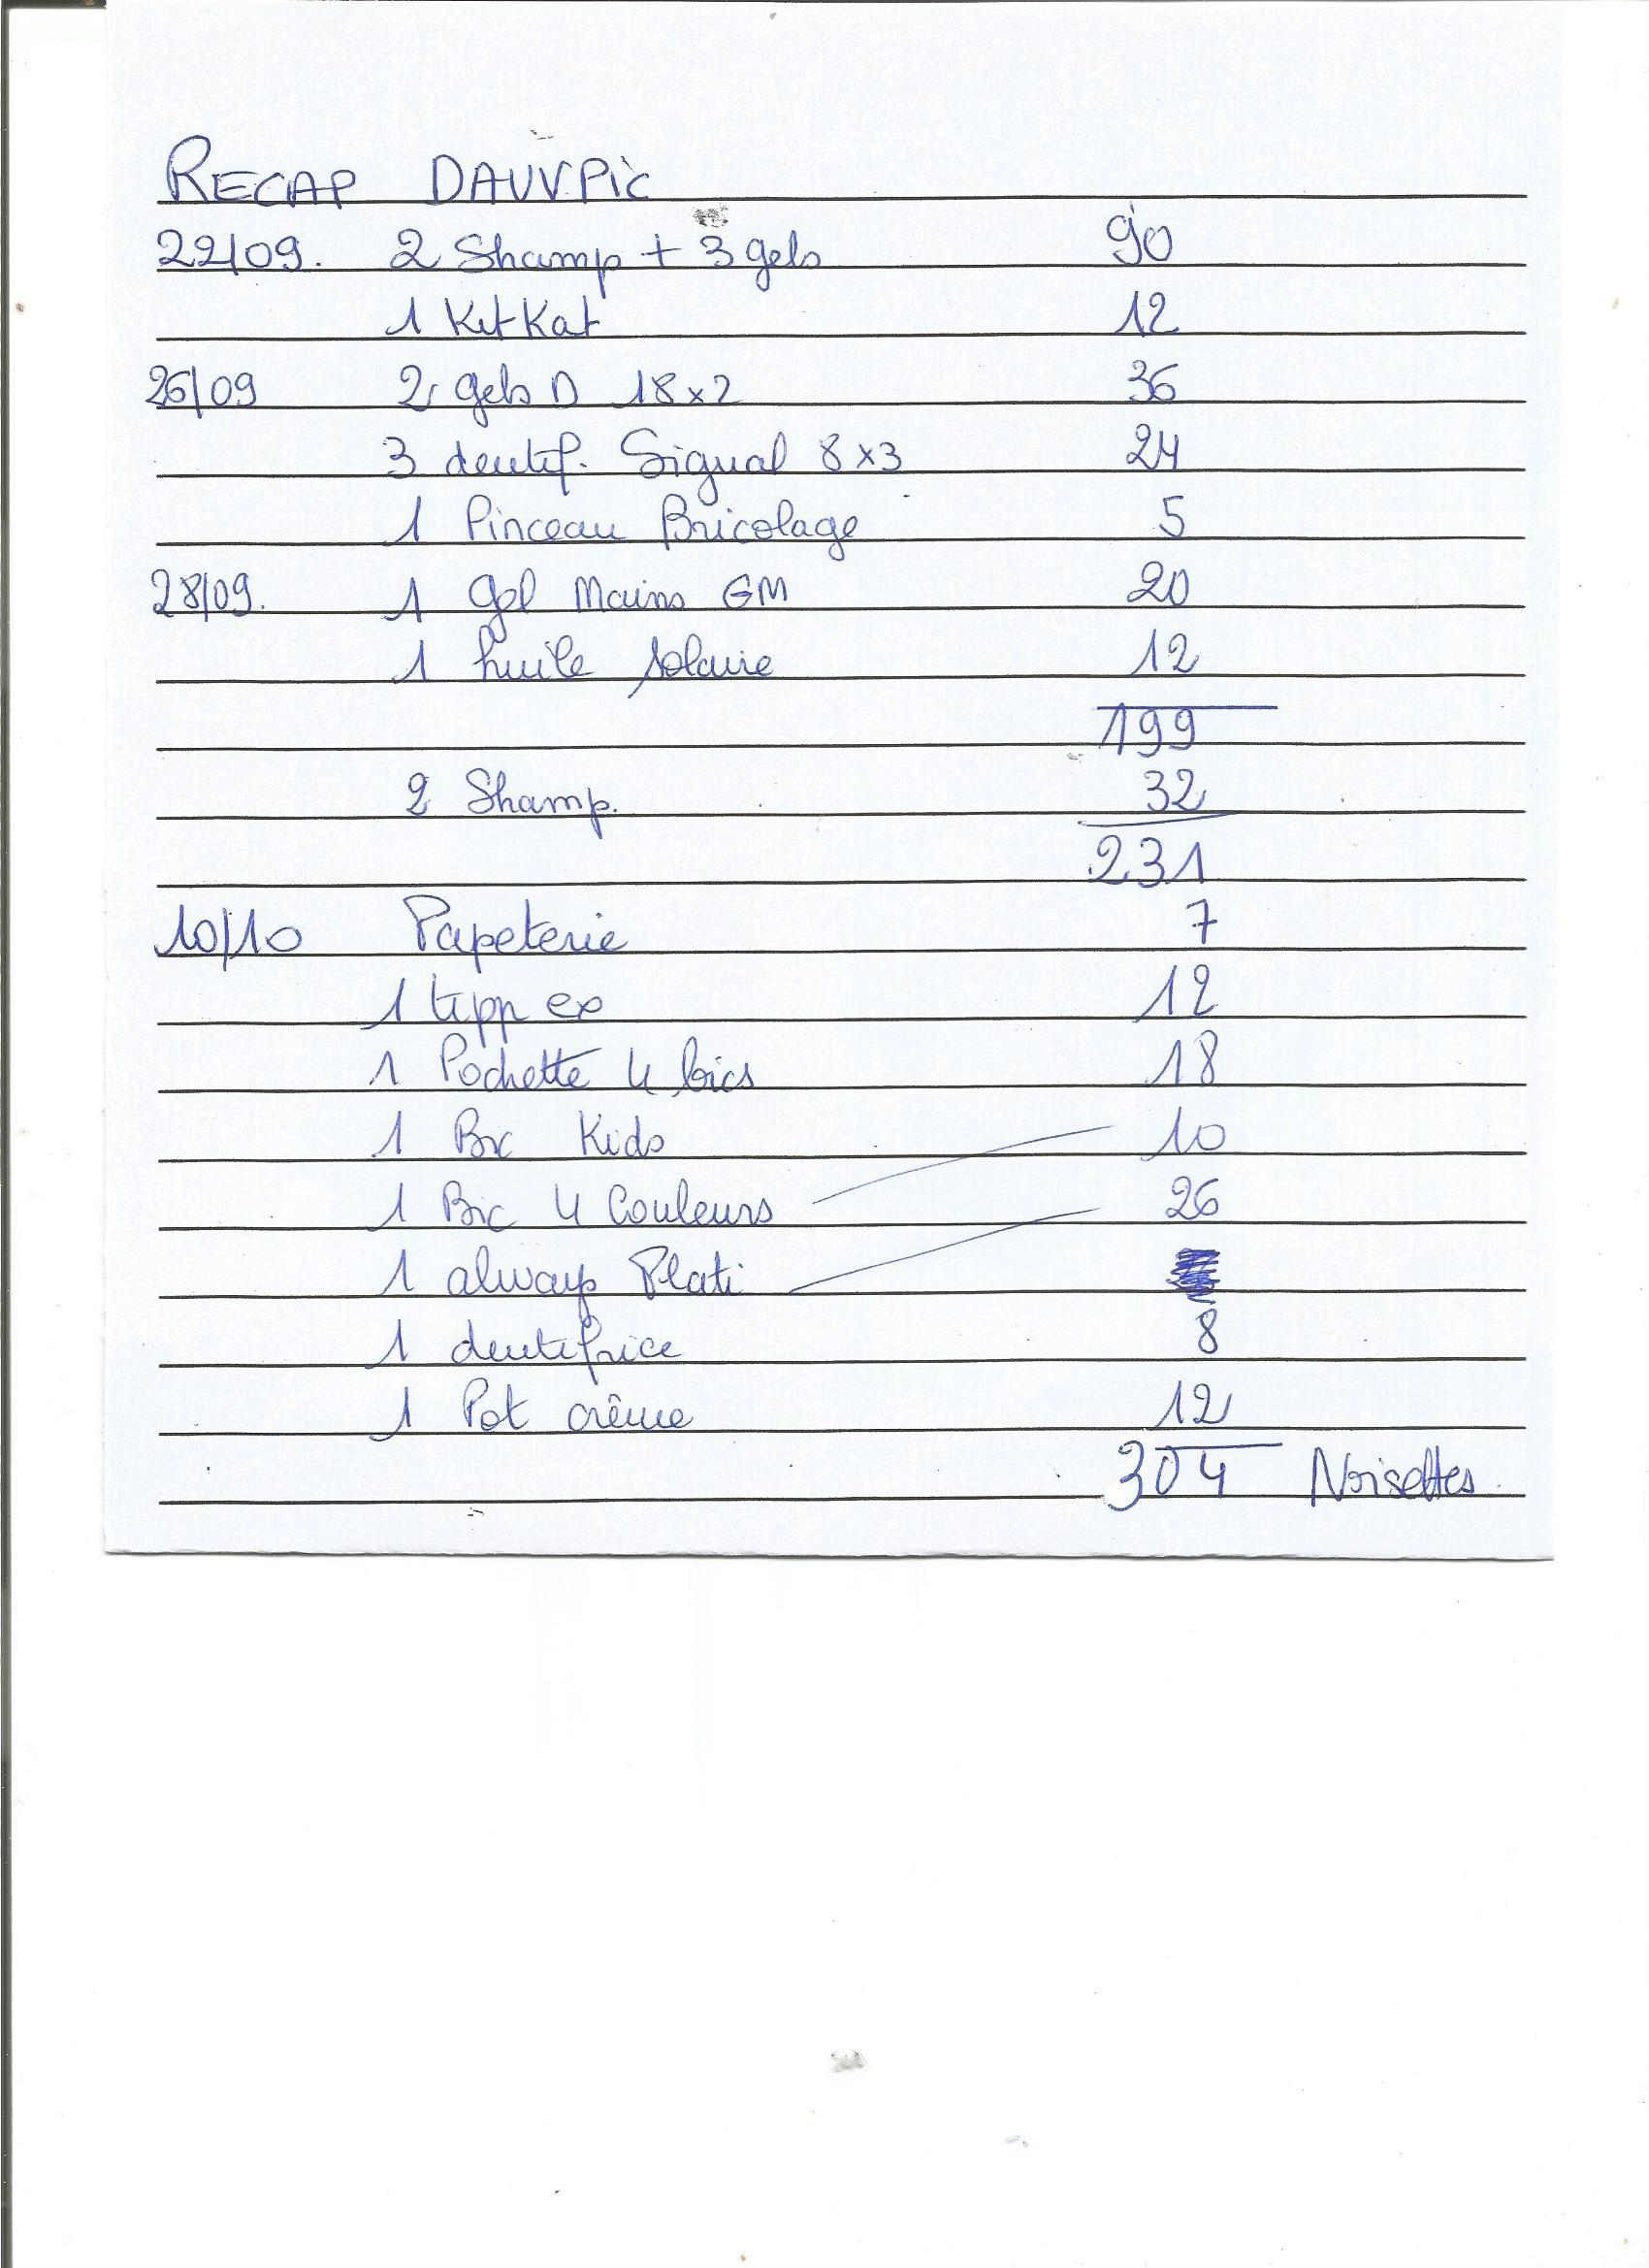 RECAP DAUVPIC
22/09. 2 Shamp + 3 gels 90
1 KitKat 12
26/09 2 gels D 18x2 36
3 dentif. Signal 8x3 24
1 Pinceau Bricolage 5
28/09. 1 Gel Mains GM 20
1 huile solaire 12
199
2 Shamp. 32
231
10/10 Papeterie 7
1 tipp ex 12
1 Pochette 4 bics 18
1 Bic Kids 10
1 Bic 4 Couleurs 26
1 always Plati
1 dentifrice 8
1 Pot crème 12
304 Noisettes